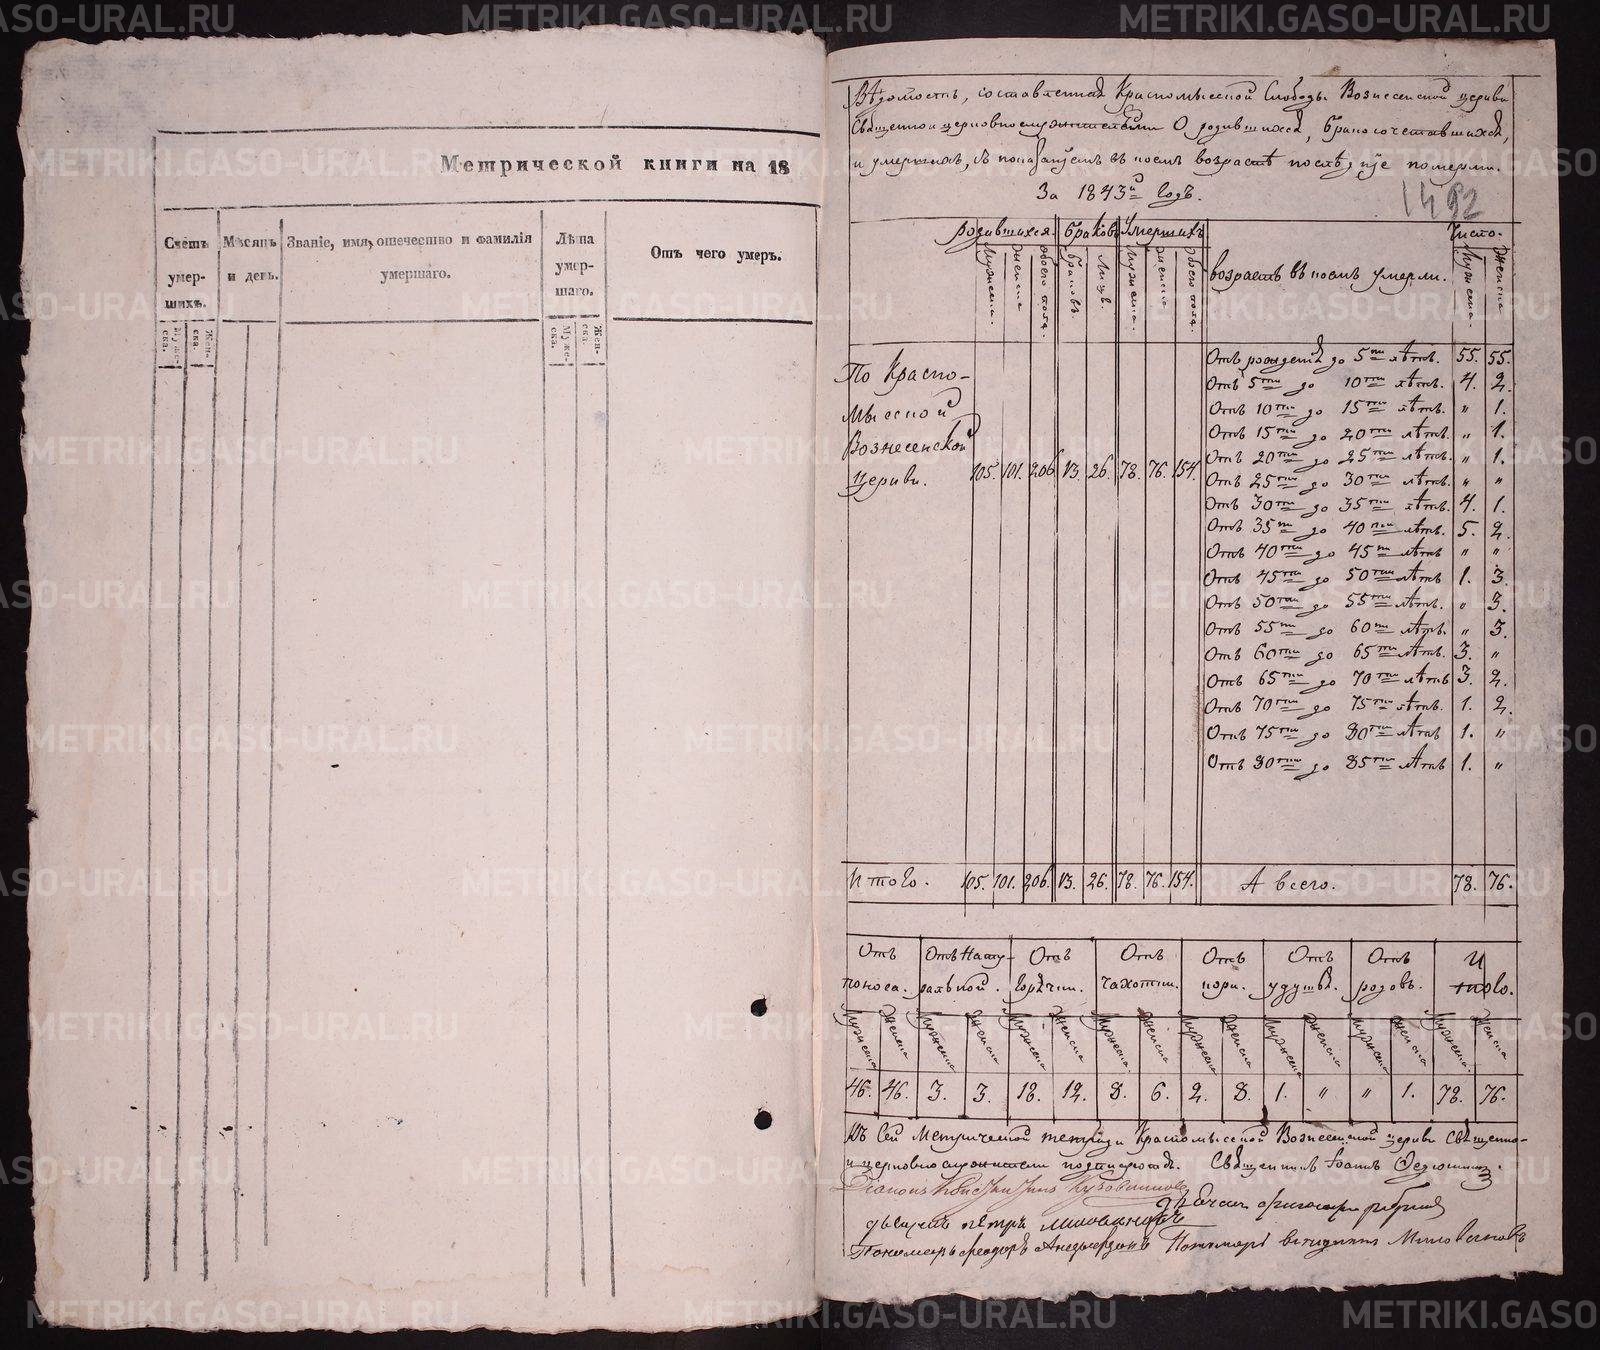 Метрической книги на 18
Счетъ умер-шихъ.
Мѣсяцъ и день.
Званіе, имя, отечество и фамилія умершаго.
Лѣта умер-шаго.
Отъ чего умеръ.
Муже-ска.
Жен-ска.
Муже-ска.
Жен-ска.
Вѣдомость, составленная Красномысской Слободы Вознесенской церкви
Священно и церковнослужителями О родившихся, бракосочетавшихся,
и умершихъ, съ показаніемъ въ коемъ возрастѣ послѣдніе померли.
За 1843й Годъ.
1492
родившихся.
браковъ
умершихъ
возрастъ въ коемъ умерли.
Число.
Мужеска.
Женска
обоего пола.
браковъ.
Лицъ.
Мужеска.
Женска.
обоего пола.
Мужеска.
Женска
По Красно-
мысской
Вознесенской
Церкви.
105. 101. 206. 13. 26. 78. 76. 154.
Отъ рожденія до 5ти лѣтъ. 55. 55.
Отъ 5ти до 10ти лѣтъ. 4. 2.
Отъ 10ти до 15ти лѣтъ. " 1.
Отъ 15ти до 20ти лѣтъ. " 1.
Отъ 20ти до 25ти лѣтъ. " 1.
Отъ 25ти до 30ти лѣтъ. " "
Отъ 30ти до 35ти лѣтъ. 4. 1.
Отъ 35ти до 40ти лѣтъ. 5. 2.
Отъ 40ти до 45ти лѣтъ " "
Отъ 45ти до 50ти лѣтъ 1. 3.
Отъ 50ти до 55ти лѣтъ. " 3.
Отъ 55ти до 60ти лѣтъ. " 3.
Отъ 60ти до 65ти лѣтъ. 3. "
Отъ 65ти до 70ти лѣтъ 3. 2.
Отъ 70ти до 75ти лѣтъ. 1. 2.
Отъ 75ти до 80ти лѣтъ 1. "
Отъ 80ти до 85ти лѣтъ 1. "
Итого. 105. 101. 206. 13. 26. 78. 76. 154. А всего. 78. 76.
Отъ поноса.
Отъ Нату-ральной.
Отъ Горячки.
Отъ чахотки.
Отъ кори.
Отъ удушья.
Отъ родовъ.
Итого.
Мужеска Женска Мужеска Женска Мужеска Женска Мужеска Женска Мужеска Женска Мужеска Женска Мужеска Женска Мужеска. Женска
46. 46. 3. 3. 18. 12. 8. 6. 2. 8. 1. " " 1. 78. 76.
Къ Сей Метрической тетради Красномысской Вознесенской церкви Священно-
и церковнослужители подписуются. Священникъ Іоаннъ
Діаконъ
дьячекъ Петръ
Пономарь Феодоръ Пономарь
METRIKI.GASO-URAL.RU